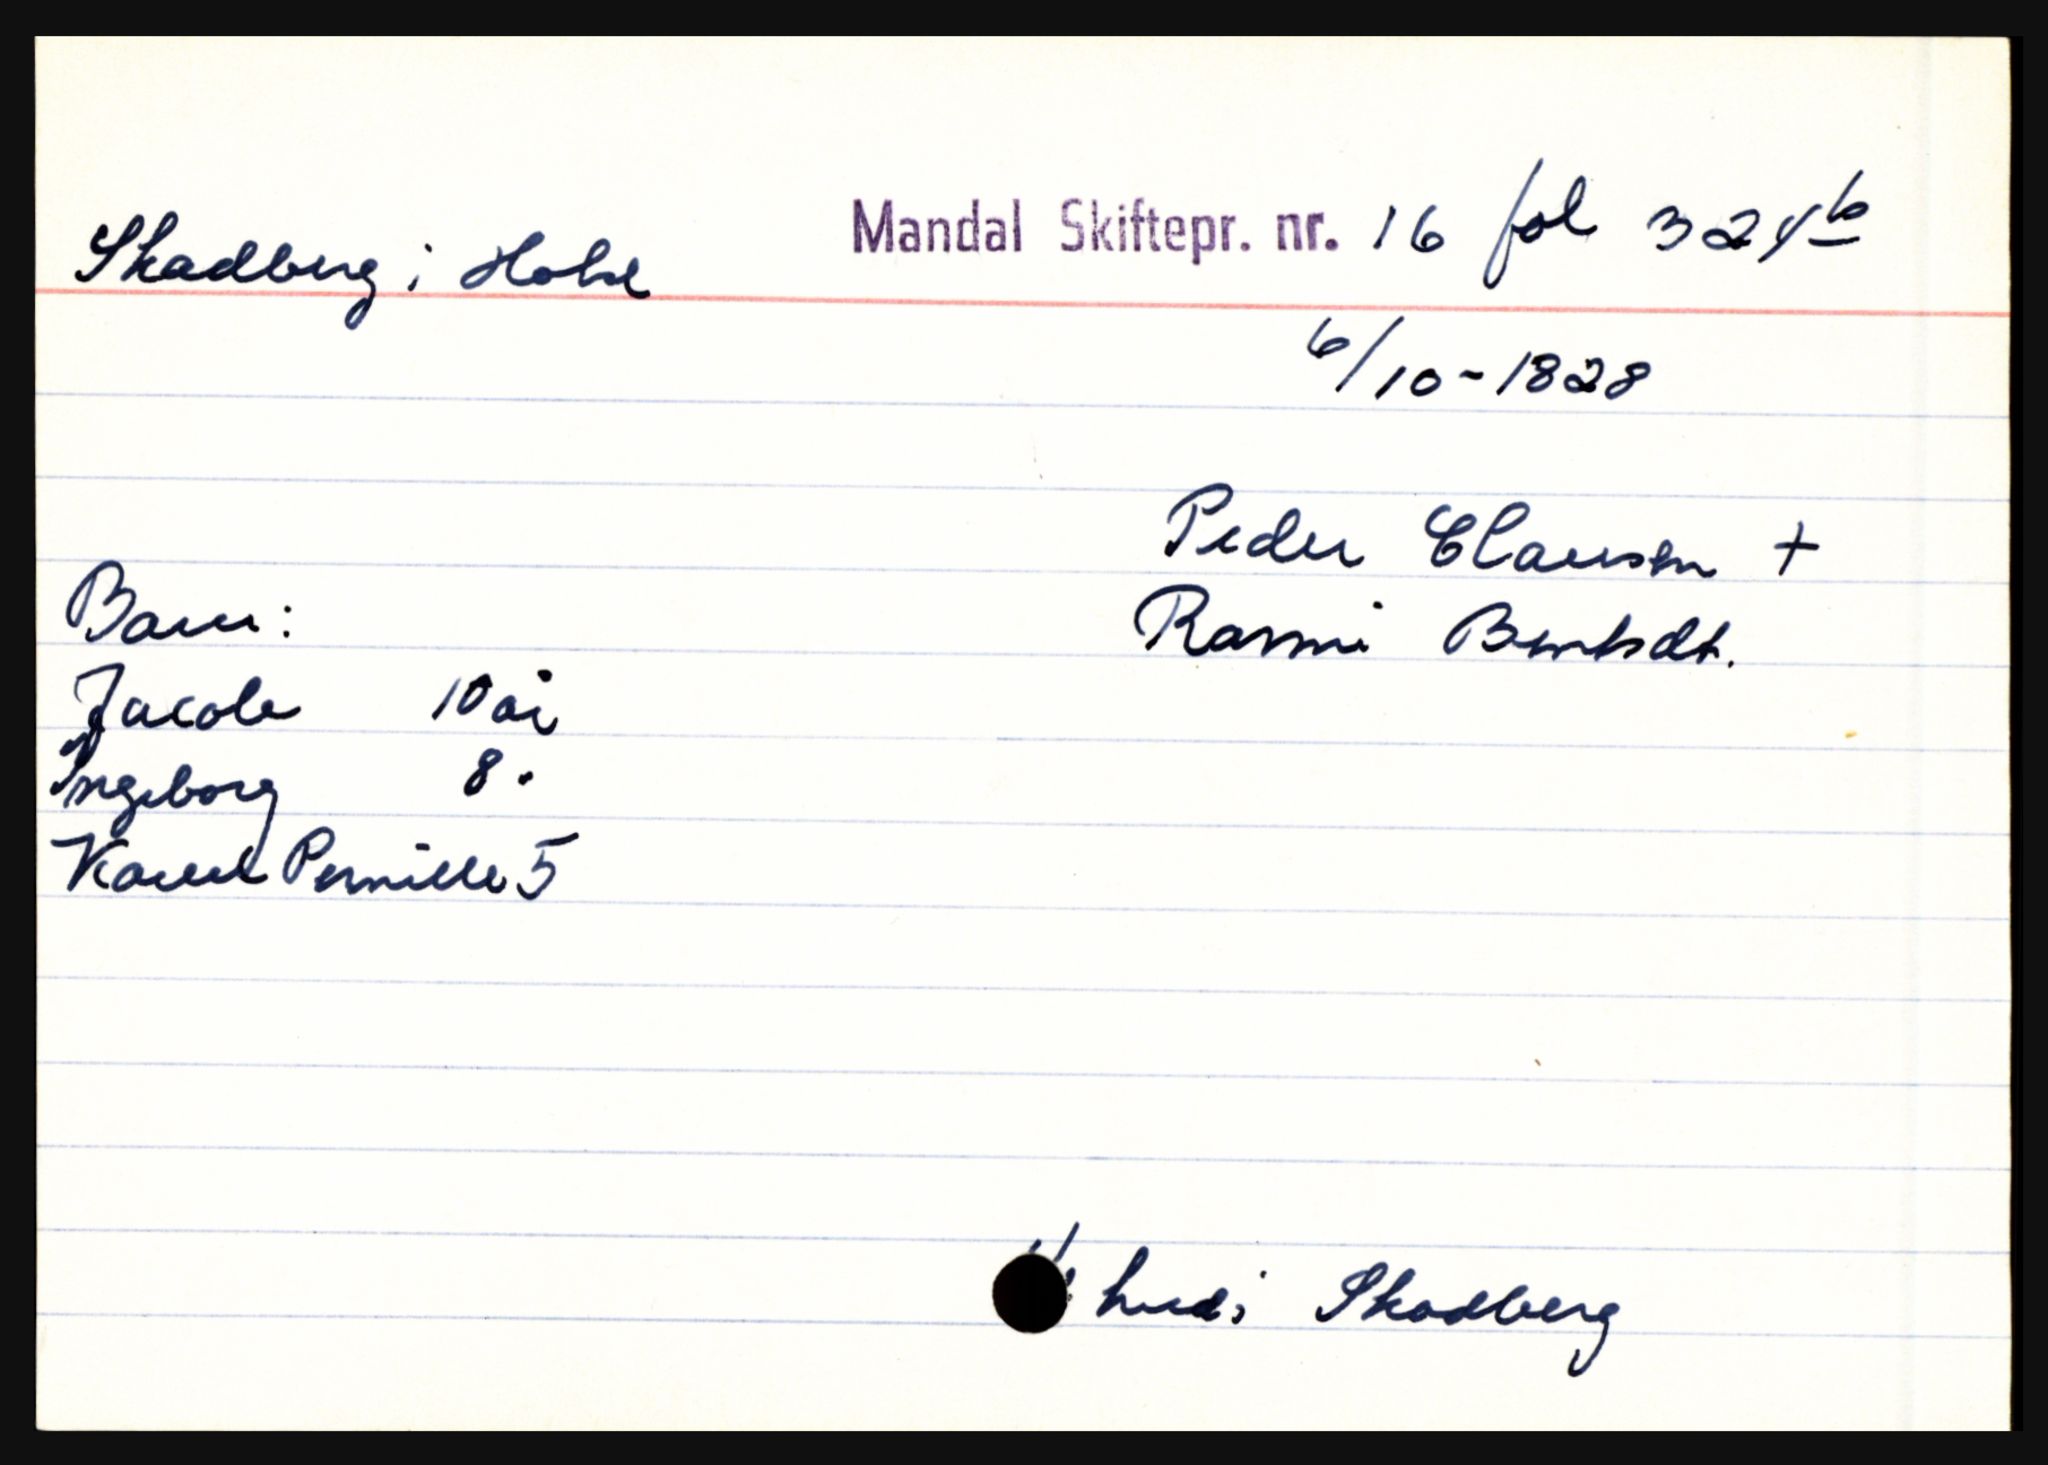 Skadberg i Holse
Mandal Skiftepr. nr. 16 fol 324b
6/10-1828
Peder Clausen +
Rasmi Berntsdt.
Barn:
Jacob 10 år
Ingeborg 8 "
Karen Pernille 5
hud i Skadberg